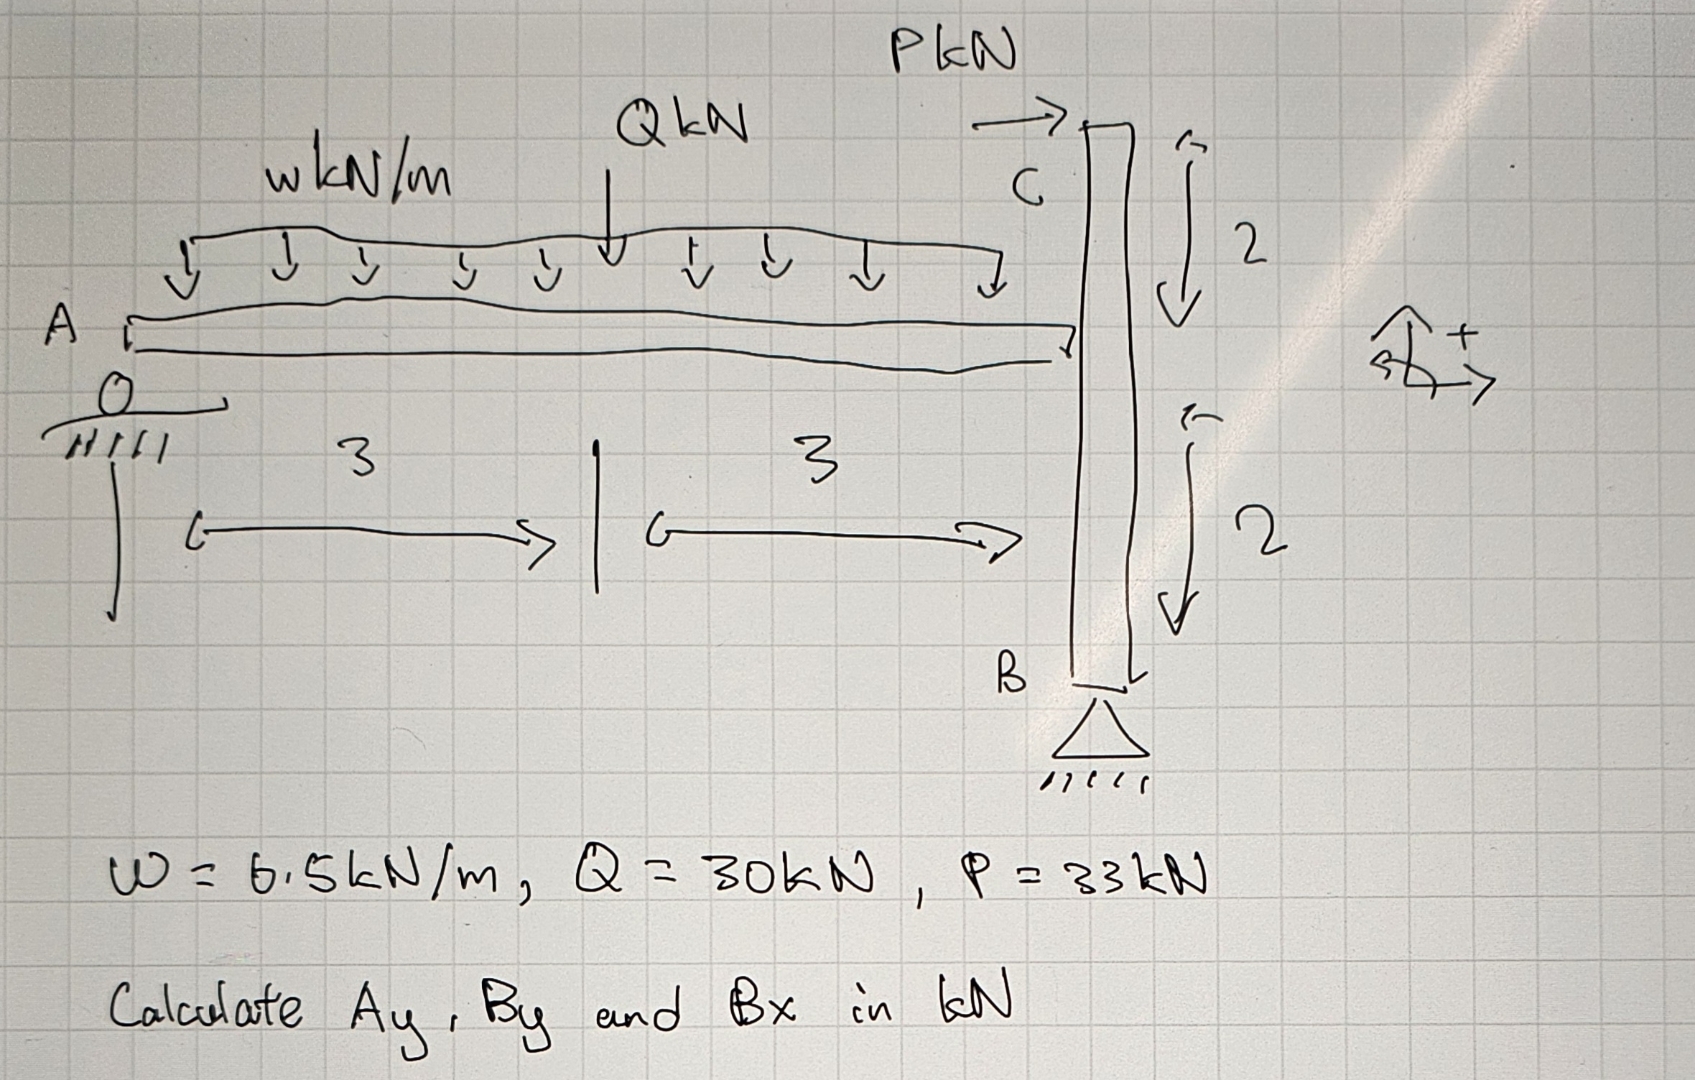 P kN
Q kN
w kN/m
C
2
A
+
3
3
2
B
w = 6.5kN/m, Q = 30kN, P = 33kN
Calculate Ay, By and Bx in kN